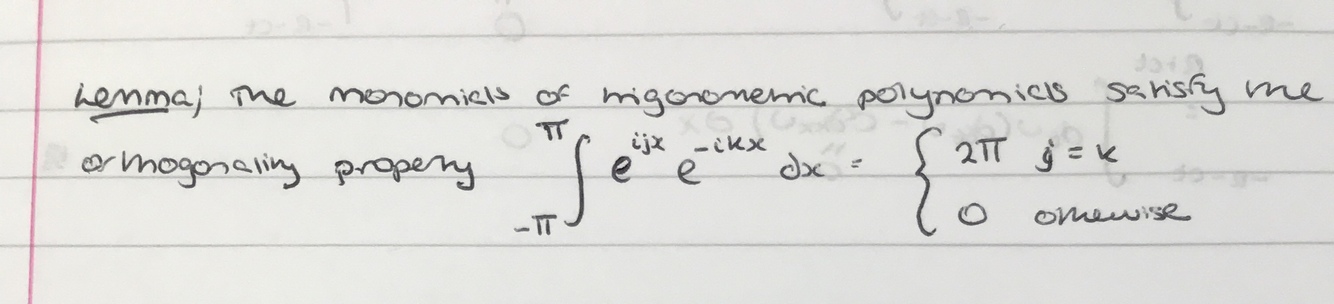 Lemma; The monomials of trigonometric polynomials satisfy the
orthogonality property ∫_{-π}^{π} e^{ijx} e^{-ikx} dx = { 2π j = k
0 otherwise